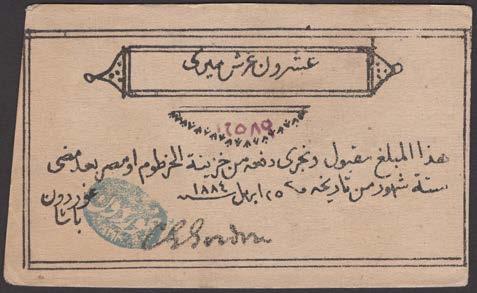 عشرون غرش ميرى
١٢٥٨٩
هذا المبلغ مقبول وتجرى دفعه من خزينة الخرطوم او مصر بعد مضى
ستة شهور من تاريخه ٢٥ ابريل سنه ١٨٨٤
غوردون
باشا
C G Gordon